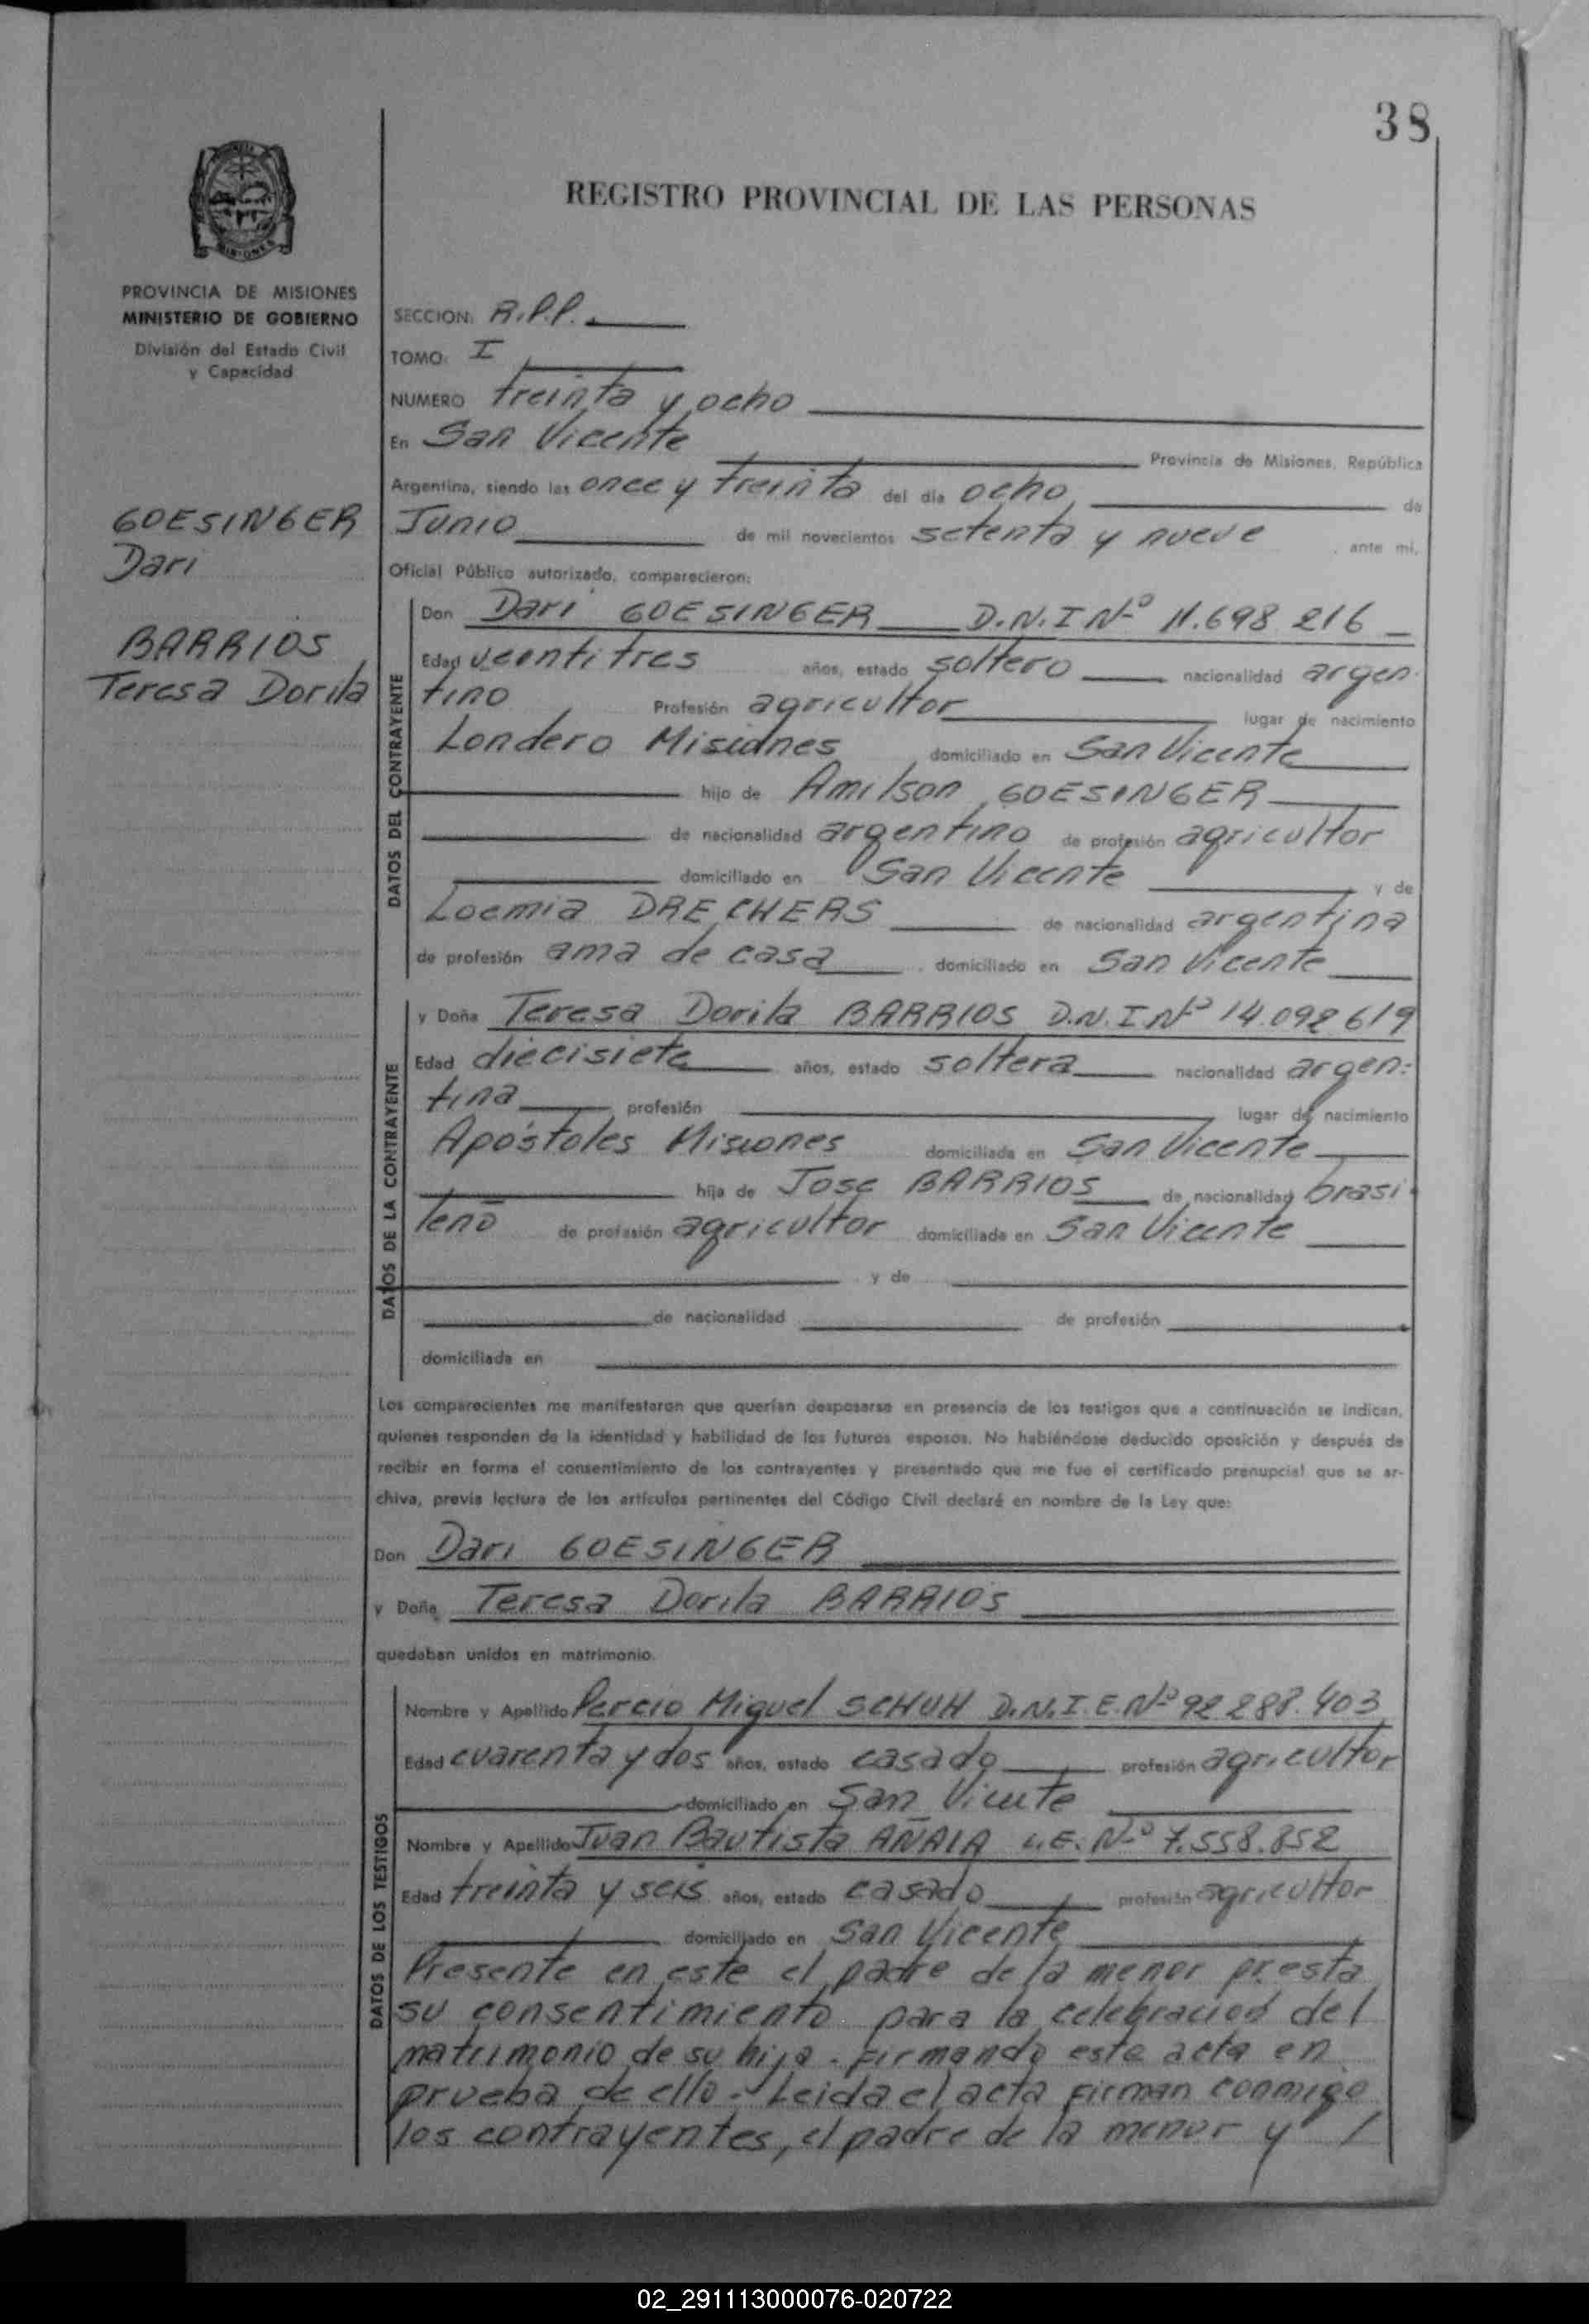 38
REGISTRO PROVINCIAL DE LAS PERSONAS
MISIONES
PROVINCIA DE MISIONES
MINISTERIO DE GOBIERNO
División del Estado Civil
y Capacidad
GOESINGER
Dari
BARRIOS
Teresa Dorila
SECCION: R.P.P.
TOMO: I
NUMERO treinta y ocho
En San Vicente Provincia de Misiones, República
Argentina, siendo las once y treinta del día ocho de
Junio de mil novecientos setenta y nueve, ante mi,
Oficial Público autorizado, comparecieron:
DATOS DEL CONTRAYENTE
Don Dari GOESINGER D.N.I Nº 11.698.216
Edad veintitres años, estado soltero nacionalidad argen-
tino Profesión agricultor lugar de nacimiento
Londero Misiones domiciliado en San Vicente
hijo de Amilson GOESINGER
de nacionalidad argentino de profesión agricultor
domiciliado en San Vicente y de
Loemia DRECHERS de nacionalidad argentina
de profesión ama de casa, domiciliado en San Vicente
DATOS DE LA CONTRAYENTE
y Doña Teresa Dorila BARRIOS D.N.I Nº 14.092.619
Edad diecisiete años, estado soltera nacionalidad argen:
tina profesión lugar de nacimiento
Apóstoles Misiones domiciliada en San Vicente
hija de Jose BARRIOS de nacionalidad brasi-
leño de profesión agricultor domiciliada en San Vicente
y de
de nacionalidad de profesión
domiciliada en
Los comparecientes me manifestaron que querían desposarse en presencia de los testigos que a continuación se indican,
quienes responden de la identidad y habilidad de los futuros esposos. No habiéndose deducido oposición y después de
recibir en forma el consentimiento de los contrayentes y presentado que me fue el certificado prenupcial que se ar-
chiva, previa lectura de los artículos pertinentes del Código Civil declaré en nombre de la Ley que:
Don Dari GOESINGER
y Doña Teresa Dorila BARRIOS
quedaban unidos en matrimonio.
DATOS DE LOS TESTIGOS
Nombre y Apellido Percio Miguel SCHUH D.N.I.E.Nº 92.288.403
Edad cuarenta y dos años, estado casado profesión agricultor
domiciliado en San Vicente
Nombre y Apellido Juan Bautista AÑAIA L.E. Nº 7.558.852
Edad treinta y seis años, estado casado profesión agricultor
domiciliado en San Vicente
Presente en este el padre de la menor presta
su consentimiento para la celebracion del
matrimonio de su hija - firmando este acta en
prueba de ello - Leida el acta firman conmigo
los contrayentes, el padre de la menor y /
02_291113000076-020722